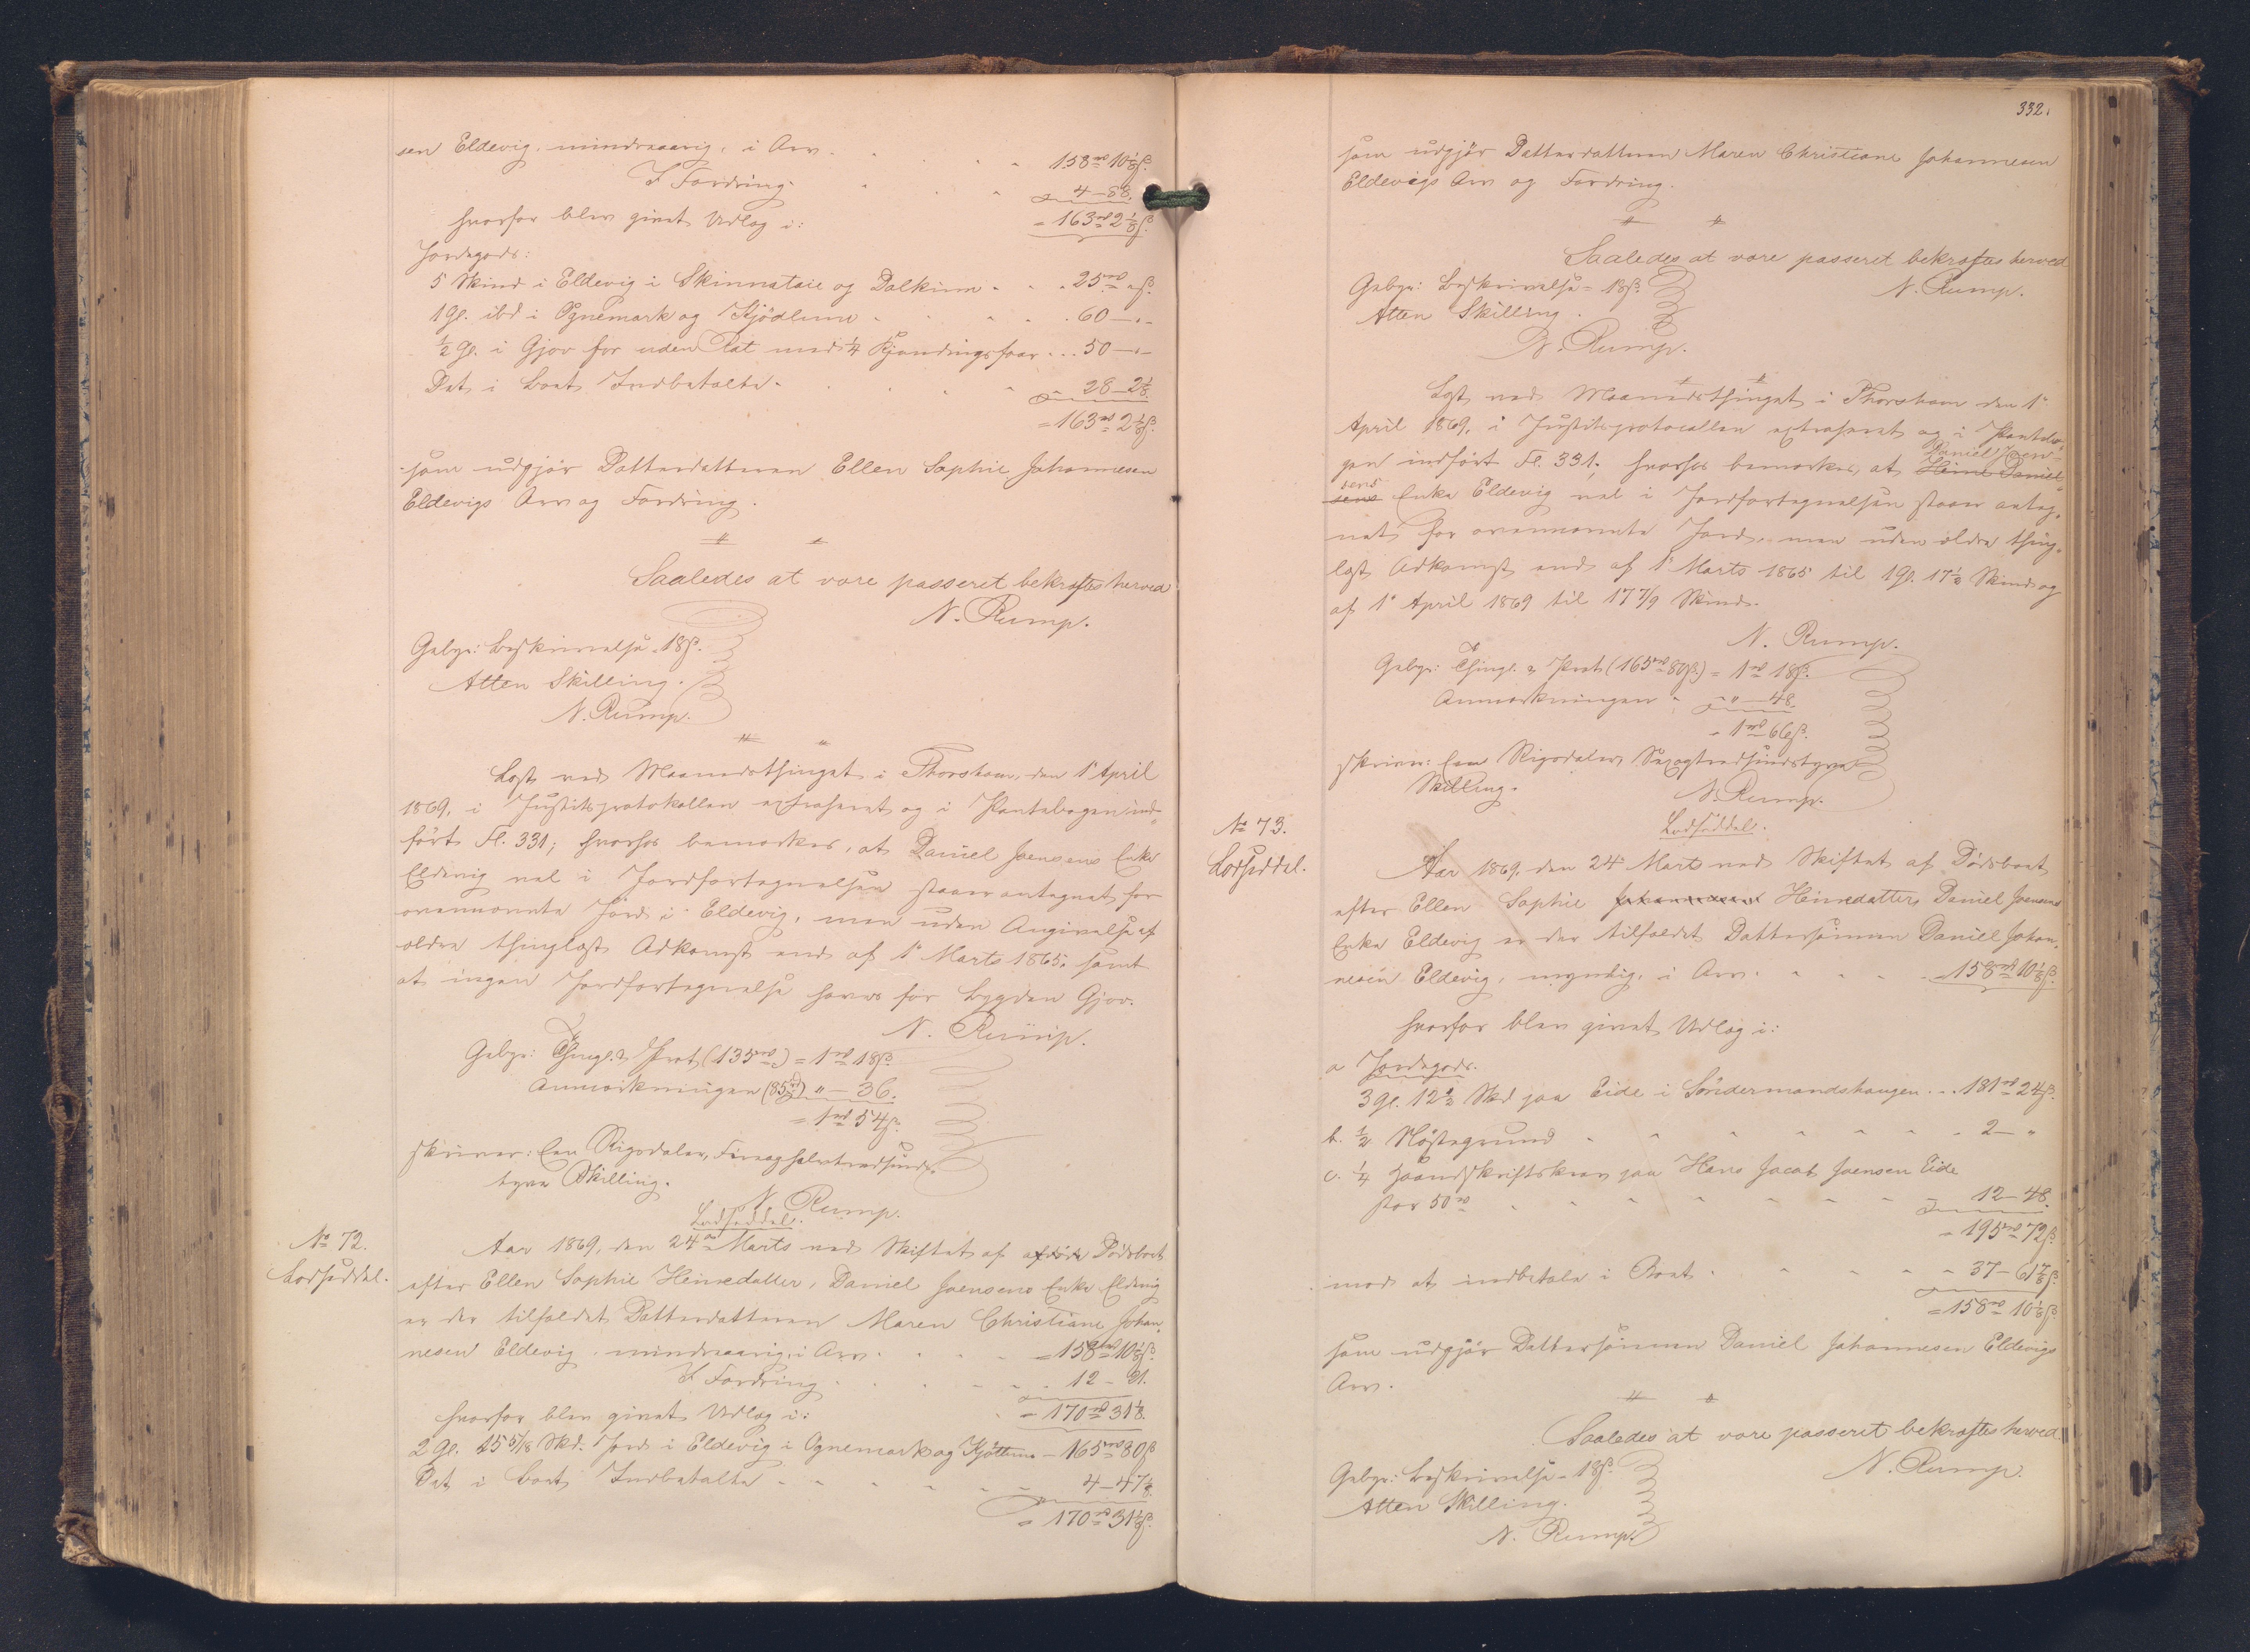 sen Eldevig, mindreaarig, i Arv. 158 rd 10 1/8 ß.
I Fordring 4 – 88.
= 163 rd 2 1/8 ß.
hvorfor blev givet Udlæg i:
Jordegods:
5 Skind i Eldevig i Skinnataie og Dalkinn 25 rd " ß.
1 Gl. ibd i Ognemark og Kjödlum 60 – " –
1/2 Gl. i Gjov for uden Ret med 1/4 Kjendingsfaar 50 – " –
Det i Boet Indbetalte 28 – 2 1/8.
= 163 rd 2 1/8 ß.
som udgjör Datterdatteren Ellen Sophie Johannesen
Eldevigs Arv og Fordring.
Saaledes at være passeret bekræftes herved
N. Rump.
Gebyr: Beskrivelse 18 ß.
Atten Skilling.
N. Rump.
Læst ved Maanedsthinget i Thorshavn, den 1' April
1869, i Justitsprotokollen extraheret og i Pantebogen ind-
fört Fl. 331; hvorhos bemærkes, at Daniel Joensens Enke
Eldevig vel i Jordfortegnelsen staaer antegnet for
ovennævnte Jord i Eldevig, men uden Angivelse af
ældre thinglæst Adkomst end af 1' Marts 1865, samt
at ingen Jordfortegnelse haves for Bygden Gjov.
N. Rump.
Gebyr: Thingl. & Prot. (135 rd) = 1 rd 18 ß.
Anmærkningen (85 rd) " – 36.
= 1 rd 54 ß.
skriver: Een Rigsdaler, Fireoghalvtredsinds-
tyve Skilling.
N. Rump.
No 72.
Lodseddel.
Lodseddel.
Aar 1869, den 24de Marts ved Skiftet af Dödsboet
efter Ellen Sophie Heinedatter, Daniel Joensens Enke Eldevig
er der tilfaldet Datterdatteren Maren Christiane Johan-
nesen Eldevig, mindreaarig, i Arv = 158 rd 10 1/8 ß.
I Fordring 12 – 21.
= 170 rd 31 1/8.
hvorfor blev givet Udlæg i:
2 Gl. 15 5/18 Skd. Jord i Eldevig i Ognemark og Kjöttum – 165 rd 80 ß
Det i Boet Indbetalte 4 – 47 1/8.
= 170 rd 31 1/8 ß.
332.
som udgjör Datterdatteren Maren Christiane Johannesen
Eldevigs Arv og Fordring.
Saaledes at være passeret bekræftes herved
N. Rump.
Gebyr: Beskrivelse = 18 ß.
Atten Skilling.
N. Rump.
Læst ved Maanedsthinget i Thorshavn den 1'
April 1869, i Justitsprotocollen extraheret og i Pantebo-
gen indfört Fl. 331; hvorhos bemærkes, at Heine Daniel- Daniel Joen-
sens sens Enke Eldevig vel i Jordfortegnelsen staaer anteg-
net for ovennævnte Jord, men uden ældre thing-
læst Adkomst end af 1' Marts 1865 til 1 Gl. 17 1/2 Skind og
af 1' April 1869 til 17 7/9 Skind.
N. Rump.
Gebyr: Thingl. & Prot. (165 rd 80 ß.) = 1 rd 18 ß.
Anmærkningen " – 48.
= 1 rd 66 ß.
skriver: Een Rigsdaler, Sexogtredsindstyve
Skilling.
N. Rump.
No 73.
Lodseddel.
Lodseddel.
Aar 1869, den 24' Marts ved Skiftet af Dödsboet
efter Ellen Sophie Heinedatter, Daniel Joensens
Enke Eldevig er der tilfaldet Dattersönnen Daniel Johan-
nesen Eldevig, myndig, i Arv 158 rd 10 1/8 ß.
hvorfor blev givet Udlæg i:
a Jordegods.
3 Gl. 12 1/2 Skd paa Eide i Söndermandshaugen 181 rd 24 ß.
b. 1/2 Nöstegrund 2 – "
c. 1/4 Haandskriftskrav paa Hans Jacob Joensen Eide
stor 50 rd 12 – 48.
= 195 rd 72 ß.
mod at indbetale i Boet 37 – 61 7/8 ß.
= 158 rd 10 1/8 ß.
som udgjör Dattersönnen Daniel Johannesen Eldevigs
Arv.
Saaledes at være passeret bekræftes herved.
N. Rump.
Gebyr: Beskrivelse – 18 ß.
Atten Skilling.
N. Rump.